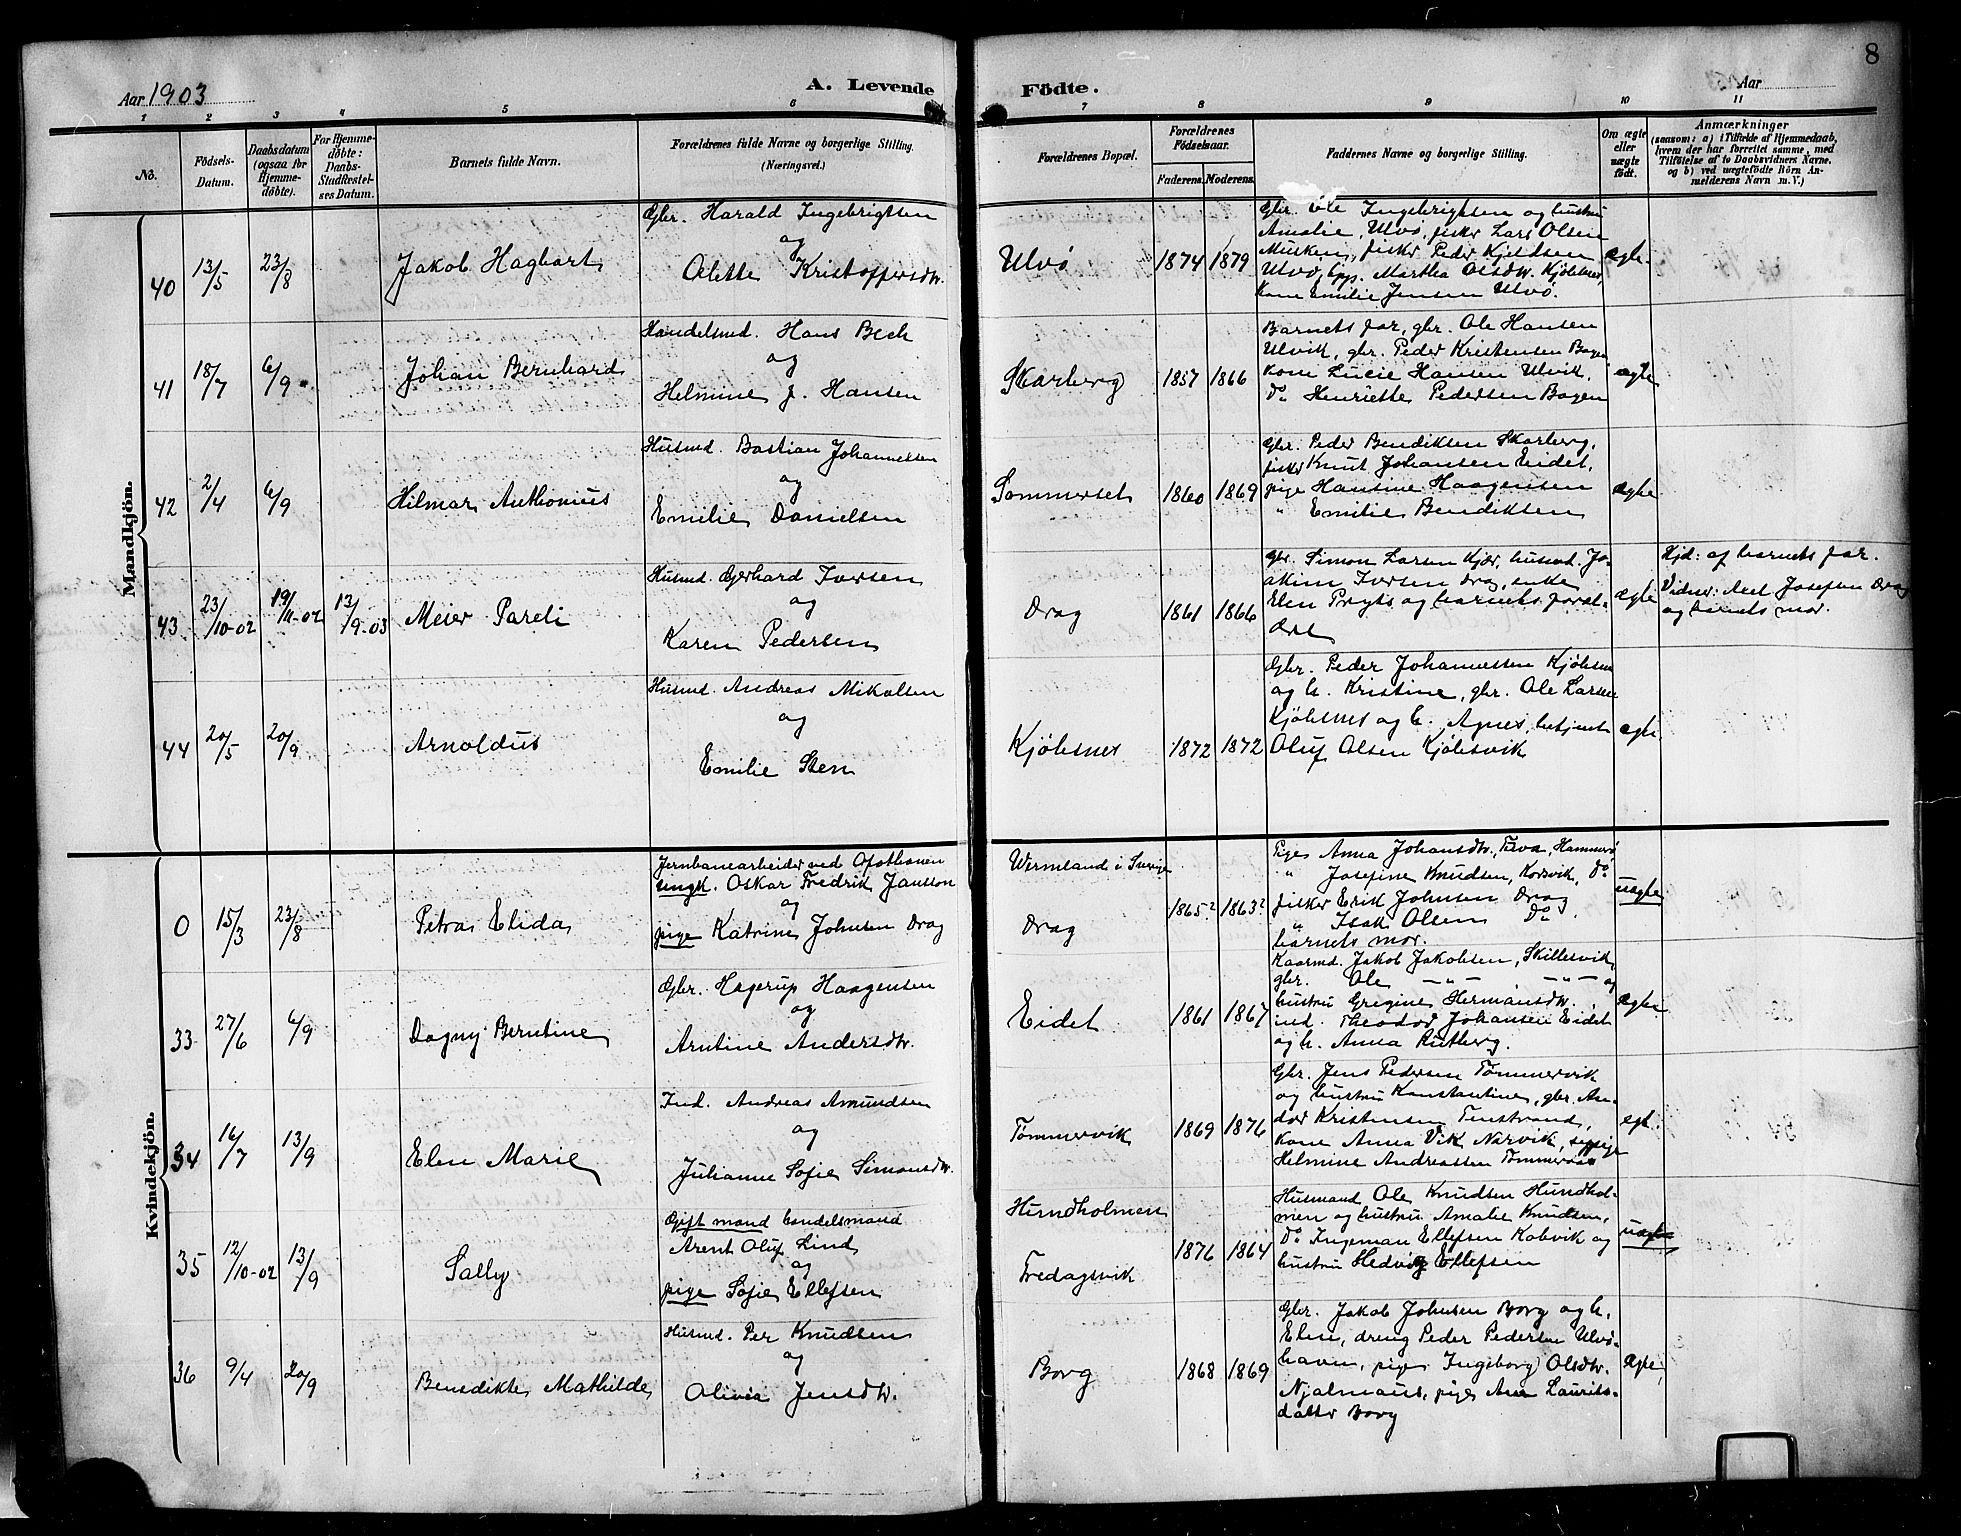 8
Aar 1903
A. Levende
Födte.
Aar
1 2 3 4 5 6 7 8 9 10 11
No.
Födsels-
Datum.
Daabsdatum
(ogsaa for
Hjemme-
döbte).
For Hjemme-
döbte:
Daabs-
Stadfæstel-
ses Datum.
Barnets fulde Navn.
Forældrenes fulde Navne og borgerlige Stilling.
(Næringsvei.)
Forældrenes Bopæl.
Forældrenes
Födselsaar.
Faderens. Moderens.
Faddernes Navne og borgerlige Stilling.
Om ægte
eller
uægte
födt.
Anmærkninger
(saasom: a) i Tilfælde af Hjemmedaab,
hvem der har forrettet samme, med
Tilföielse af to Daabsvidners Navne.
og b) ved uægtefödte Börn An-
melderens Navn m. V.)
Mandkjön.
40 13/5 23/8
Jakob Hagbart
Gbr. Harald Ingebrigtsen
og
Olette Kristoffersdtr.
Ulvø
1874 1879
Gbr. Ole Ingebrigtsen og hustru
Amalie, Ulvø, fisker Lars Olsen
Musken, fisker Peder Kjeldsen
Ulvø, Martha Olsdtr. Kjölsnes,
kone Emilie Jensen Ulvø.
ægte.
41 18/7 6/9
Johan Bernhard
Handelsmd. Hans Bech
og
Helmine J. Hansen
Skarberg
1857 1866
Barnets far, gbr. Ole Hansen
Ulvik, gbr. Peder Kristensen Bogen
kone Lucie Hansen Ulvik,
Do Henriette Pedersen Bogen
ægte
42 2/4 6/9
Hilmar Anthonius
Husmd. Bastian Johannessen
og
Emilie Danielsen
Sommerset
1860 1869
Gbr. Peder Bendiksen Skarberg,
fisker Knut Johansen Eidet,
pige Hansine Haagensen
" Emilie Bendiksen
ægte
43 23/10-02 19/11-02 13/9-03
Meier Pareli
Husmd. Gerhard Iversen
og
Karen Pedersen
Drag
1861 1866
Gbr. Simon Larsen Kjær, husmd. Jo-
akim Iversen Drag, enke
Elen Pryts og barnets foræl-
dre
ægte
Hjd: af barnets far.
Vidner: Axel Josefsen Drag
og barnets mor.
44 20/5 20/9
Arnoldus
Husmd. Andreas Mikalsen
og
Emilie Sten
Kjølsnes
1872 1872
Gbr. Peder Johannessen Kjölsnes
og h. Kristine, gbr. Ole Larsen
Kjölsnes og h. Agnes, betjent
Oluf Olsen Kjölsvik
ægte
Kvindekjön.
0 15/3 23/8
Petra Elida
Jernbanearbeider ved Ofotbanen
ungk. Oskar Fredrik Jansson
og
pige Katrine Johnsen Drag
Wermland i Sverige
Drag
1865? 1863?
Pige Anna Johansdtr., Hammerø,
" Josefine Knudsen, Korsvik, Do
fisker Erik Johnsen Drag
" Isak Olsen Do.
barnets mor.
uægte
33 27/6 6/9
Dagny Berntine
Gbr. Hagerup Haagensen
og
Arntine Andersdtr.
Eidet
1861 1867
Kaarmd. Jakob Jakobsen, Skillesvik,
gbr. Ole —"— —"— og
hustru Gregine Hermansdtr.
ind. Theodor Johansen Eidet
og h. Anna Rutberg.
ægte
34 16/7 13/9
Elen Marie
Ind. Andreas Amundsen
og
Julianne Sofie Simonsdtr.
Tømmervik
1869 1876
Gbr. Jens Pedersen Tømmervik
og hustru Konstantine, gbr. An-
dor Kristensen Finstrand,
kone Anna Vik Narvik, sypige
Helmine Andreassen Tømmeraas
egt.
35 12/10-02 13/9
Sally
Gift mand handelsmand
Arent Oluf Lind
og
pige Sofie Ellefsen
Hundholmen
Fredagsvik
1876 1864
Husmand Ole Knudsen Hundhol-
men og hustru Amalie Knudsen,
Do Ingeman Ellefsen Kobvik og
hustru Hedvig Ellefsen
uægte
36 9/4 20/9
Benedikte Mathilde
Husmd. Per Knudsen
og
Olivia Jensdtr.
Borg
1868 1869
Gbr. Jakob Johnsen Borg og h.
Elen, dreng Peder Pedersen Ulvø-
havn, pige Ingeborg Olsdtr.
Njalmaus, pige Ane Laurits-
datter Borg
Ægte,